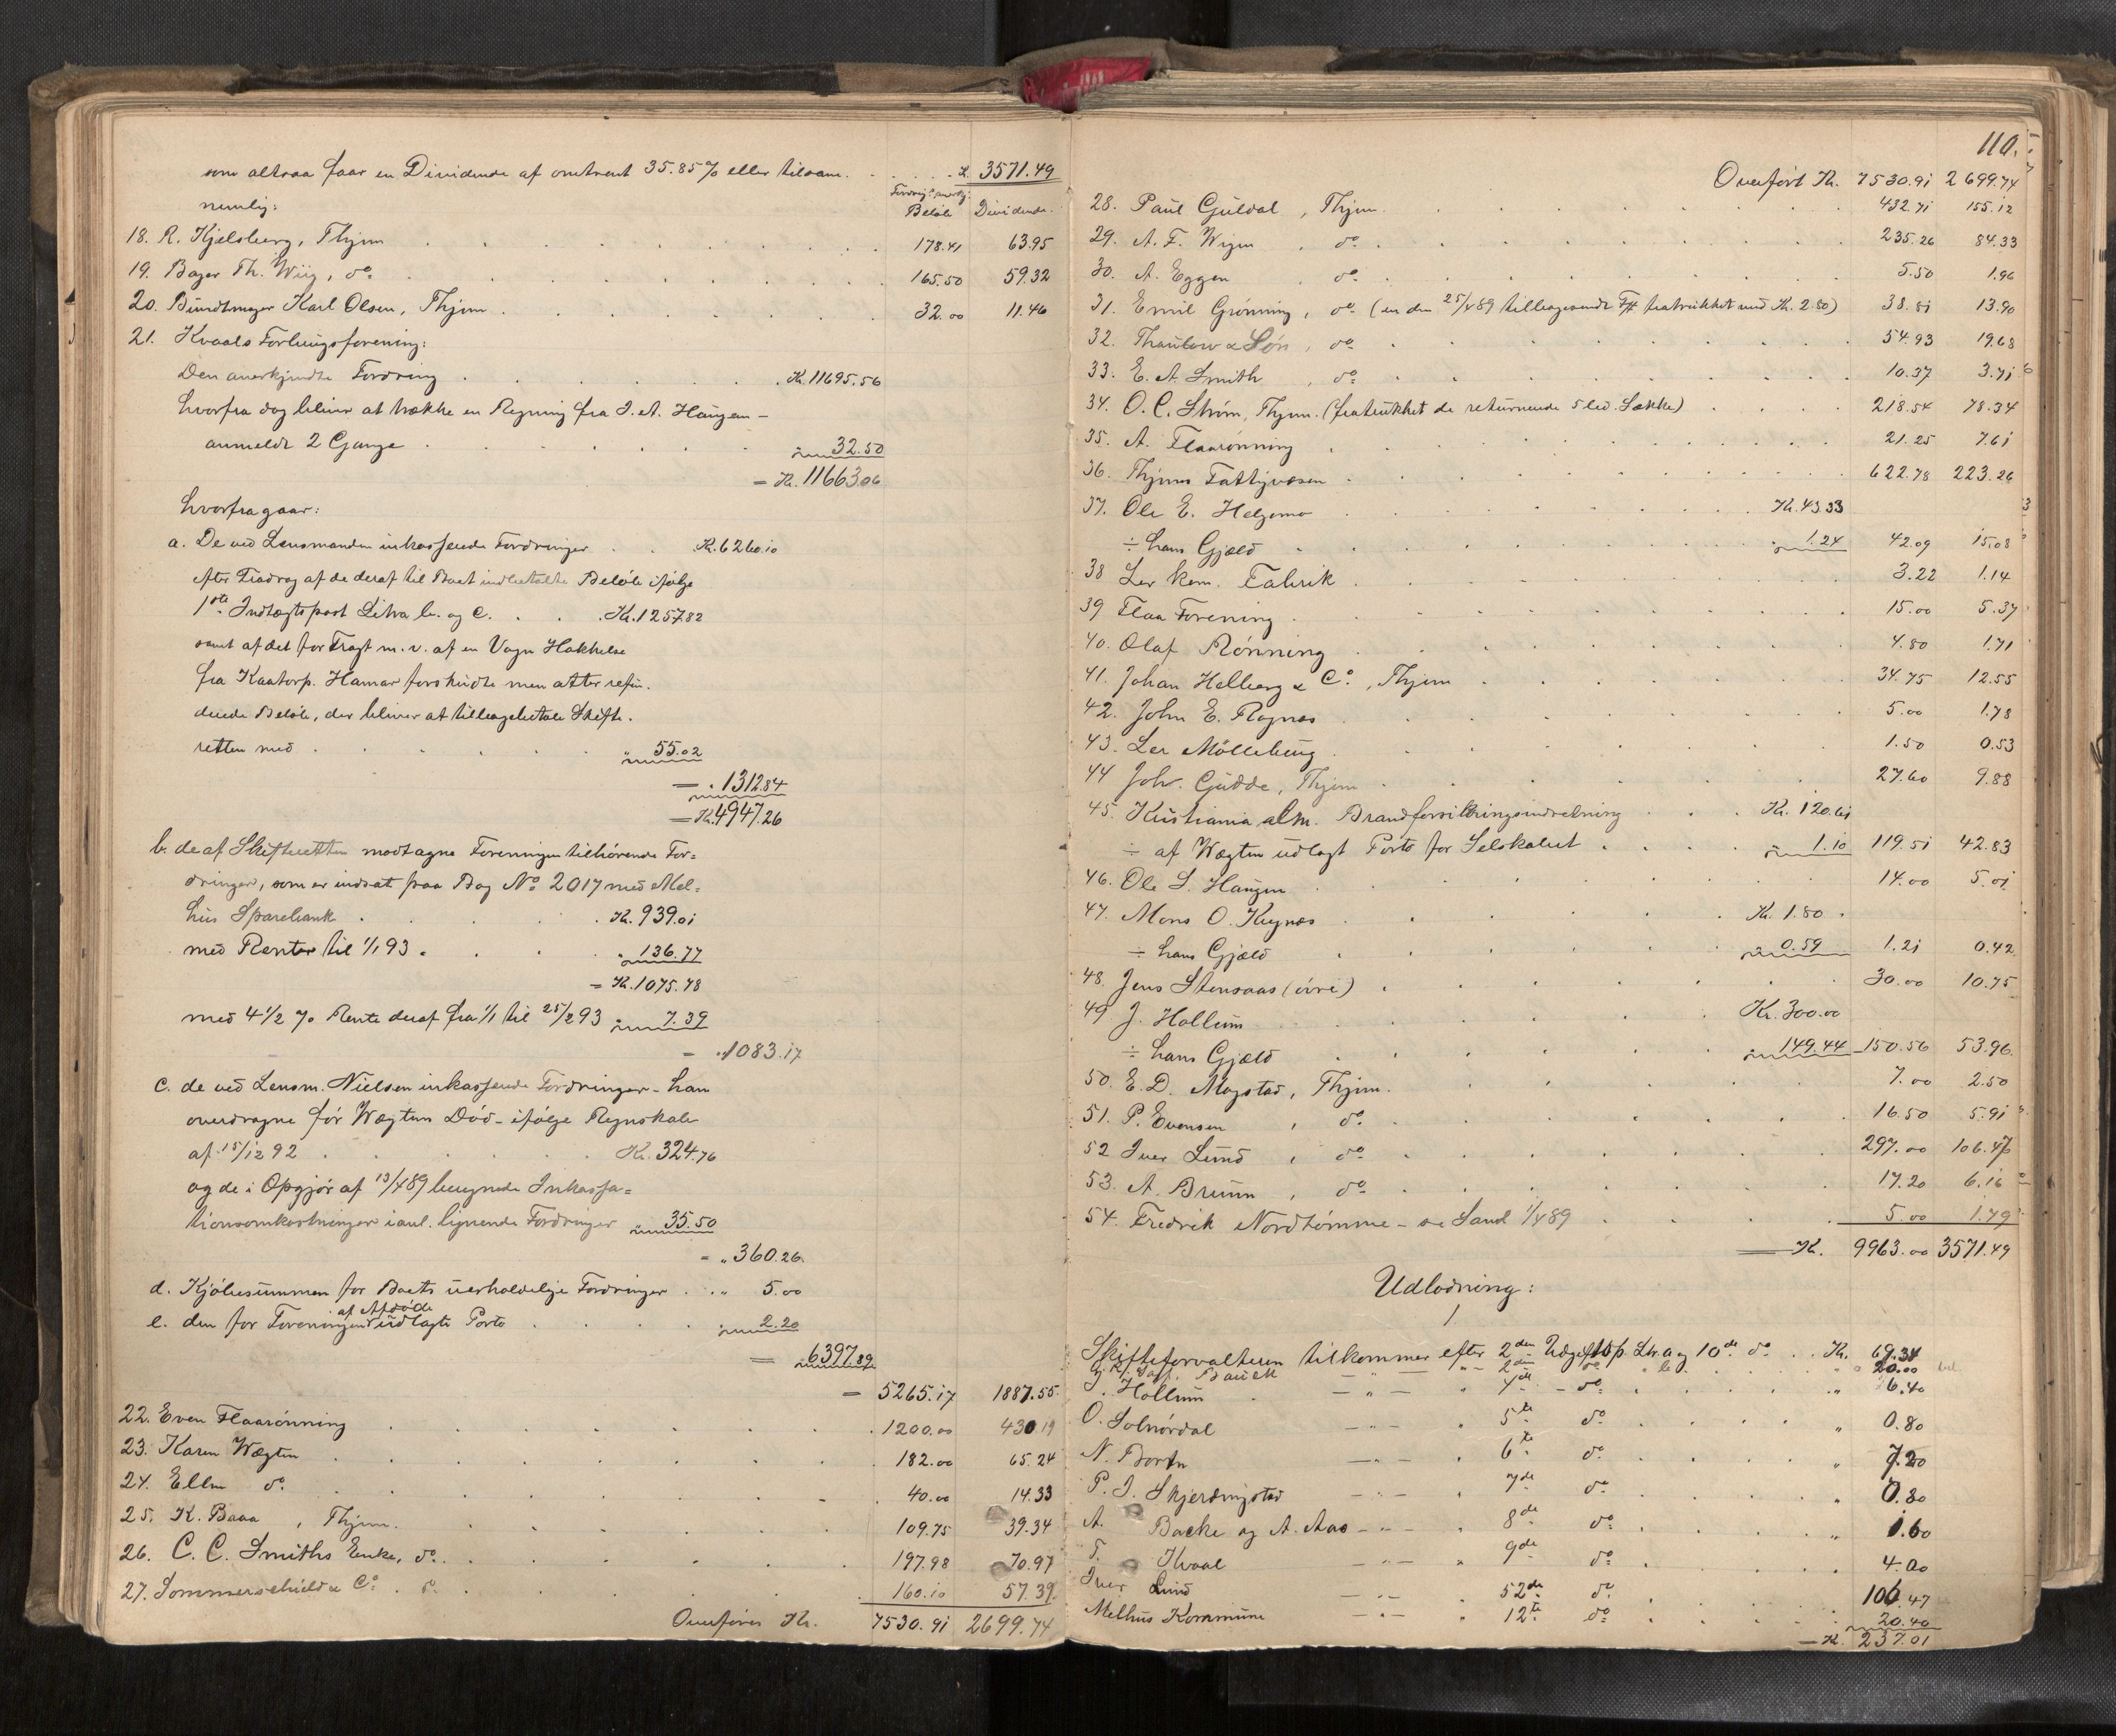 som altsaa faar en Dividende af omtrent 35.85% eller tilsam. . . . . K. 3571.49
nemlig:
Beløb Dividende.
18. R. Kjelsberg, Thjem 178.41 63.95
19. Bager Th. Wiig, do. 165.50 59.32
20. Bundtmager Karl Olsen, Thjem 32.00 11.46
21. Kvaals Forbrugsforening:
Den anerkjendte Fordring Kr. 11695.56
hvorfra dog bliver at trække en Regning fra J. A. Haugen –
anmeldt 2 Gange " 32.50
= Kr. 11663.06
hvorfra gaar:
a. De ved Lensmanden inkasserede Fordringer Kr. 6260.10
efter Fradrag af de deraf til Boet indbetalte Beløb ifølge
1ste Indtægtspost Litra b. og c. Kr. 1257.82
samt af det for Fragt m. v. af en Vogn Hakkelse
fra Kaatorp. Hamar forskudte men atter refun-
derede Beløb, der bliver at tilbagebetale Skifte-
retten med " 55.02
= " 1312.84
= Kr. 4947.26
b. de af Skifteretten modtagne Foreningen tilhørende For=
dringer, som er indsat paa Bog No 2017 med Mel=
hus Sparebank Kr. 939.01
med Renter til 1/1 93 " 136.77
= Kr. 1075.78
med 4 1/2 % Rente deraf fra 1/1 til 25/2 93 " 7.39
= " 1083.17
c. de ved Lensm. Nielsen inkasserede Fordringer – ham
overdragne før Wægtens Død – ifølge Regnskab
af 15/12 92 Kr. 324.76
og de i Opgjør af 13/4 89 beregnede Inkassa=
tionsomkostninger i anl. lignende Fordringer " 35.50
= " 360.26
d. Kjøbesummen for Boets uerholdelige Fordringer " 5.00
af Afdøde
e. den for Foreningen udlagte Porto " 2.20
= 6397.89
= 5265.17 1887.55
22. Even Flaarønning 1200.00 430.19
23. Karen Wægten 182.00 65.24
24. Ellen do. 40.00 14.33
25. K. Baaa, Thjem. 109.75 39.34
26. C. C. Smiths Enke, do. 197.98 70.97
27. Sommerschield & Co. do. 160.10 57.39
Overføres Kr. 7530.91 2699.74
110.
Overført Kr. 7530.91 2699.74
28. Paul Guldal, Thjem. 432.71 155.12
29. A. F. Wigen, do. 235.26 84.33
30. A. Eggen do. 5.50 1.96
31. Emil Grønning, do. (en den 25/4 89 tilbagesendt fratrukket med Kr. 2.80) 38.81 13.90
32. Thaulow & Søn, do. 54.93 19.68
33. E. A. Smith, do. 10.37 3.71
34. O. C. Strøm, Thjem. (fratrukket de returnerede 5 led. Sække) 218.54 78.34
35. A. Flaarønning 21.25 7.61
36. Thjems Fattigvæsen 622.78 223.26
37. Ole E. Helgemo Kr. 43.33
÷ hans Gjæld " 1.24 42.09 15.08
38 Ler kem. Fabrik 3.22 1.14
39 Flaa Forening 15.00 5.37
40. Olaf Rønning 4.80 1.71
41. Johan Helberg & Co., Thjem 34.75 12.55
42. John E. Rognes 5.00 1.78
43. Ler Møllebrug 1.50 0.53
44 Joh. Gudde, Thjem 27.60 9.88
45. Kristiania alm. Brandforsikringsindretning Kr. 120.61
÷ af Wægten udlagt Porto for Selskabet " 1.10 119.51 42.83
46. Ole L. Haugen 14.00 5.01
47. Mons O. Kregnes Kr. 1.80
÷ hans Gjæld " 0.59 1.21 0.42
48. Jens Stensaas (øvre) 30.00 10.75
49 J. Hollum Kr. 300.00
÷ hans Gjæld " 149.44 150.56 53.96
50. E. D. Mogstad, Thjem. 7.00 2.50
51. P. Evensen, do. 16.50 5.91
52 Iver Lund, do. 297.00 106.47
53. A. Bruun, do. 17.20 6.16
54. Fredrik Nordtømme – se Saml. 1/4 89 5.00 1.79
= Kr. 9963.00 3571.49
Udlodning:
1
Skifteforvalteren tilkommer efter 2den Udgiftsp. Litr. a og 10de do. Kr. 69.34
Bauck – " – " 2den do. b. " 20.00
J. Hollum – " – " 4de do. " 6.40
O. Solnørdal – " – " 5te do. " 0.80
N. Borten – " – " 6te do. " 7.20
P. J. Skjerdingstad – " – " 7de do. " 0.80
A. Backe og A. Aas – " – " 8de do. " 1.60
T. Kvaal – " – " 9de do. " 4.00
Iver Lund – " – " 52de do. 106.47
Melhus Kommune – " – " 12te do. 20.40
= Kr. 237.01